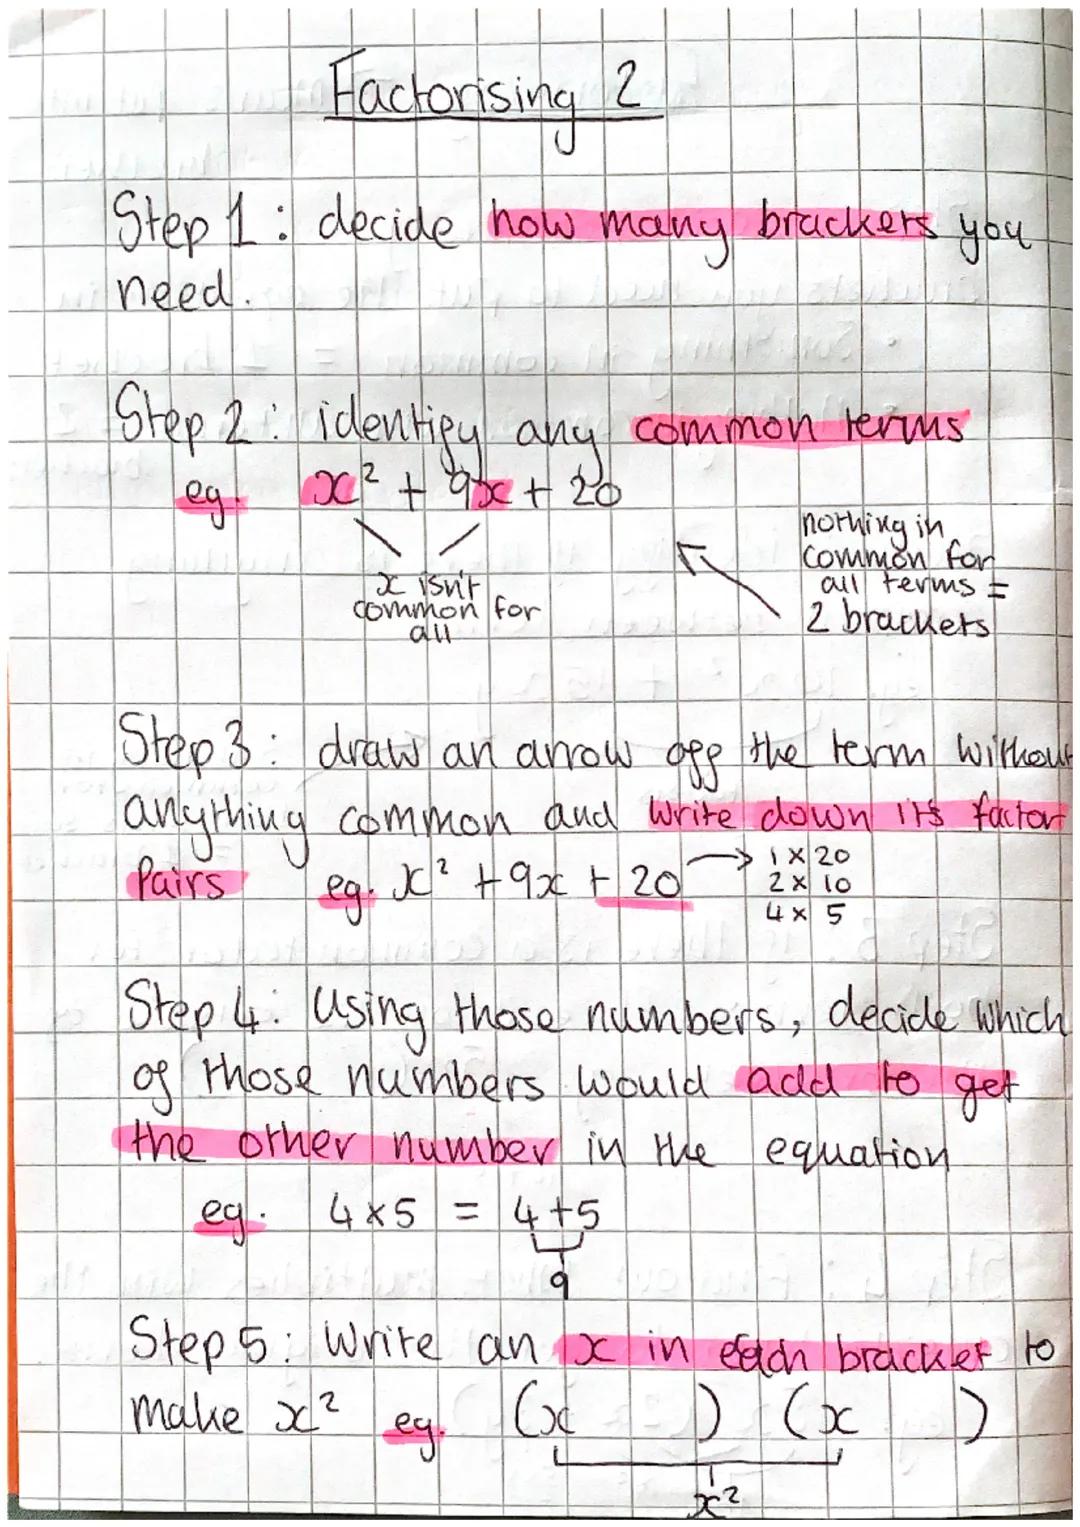 Factorising 2
Step 1 : decide how many brackets you
need.
Step 2 : identify any common terms
eg. x² + 9x + 20
x isn't
common for
all
nothing in
common for
all terms =
2 brackets
Step 3 : draw an arrow off the term without
anything common and write down its factor
Pairs eg. x² + 9x + 20 → 1 x 20
2 x 10
4 x 5
Step 4 : Using those numbers, decide which
of those numbers would add to get
the other number in the equation
eg. 4 x 5 = 4 + 5
9
Step 5 : Write an x in each bracket to
make x² eg. (x ) (x )
x²